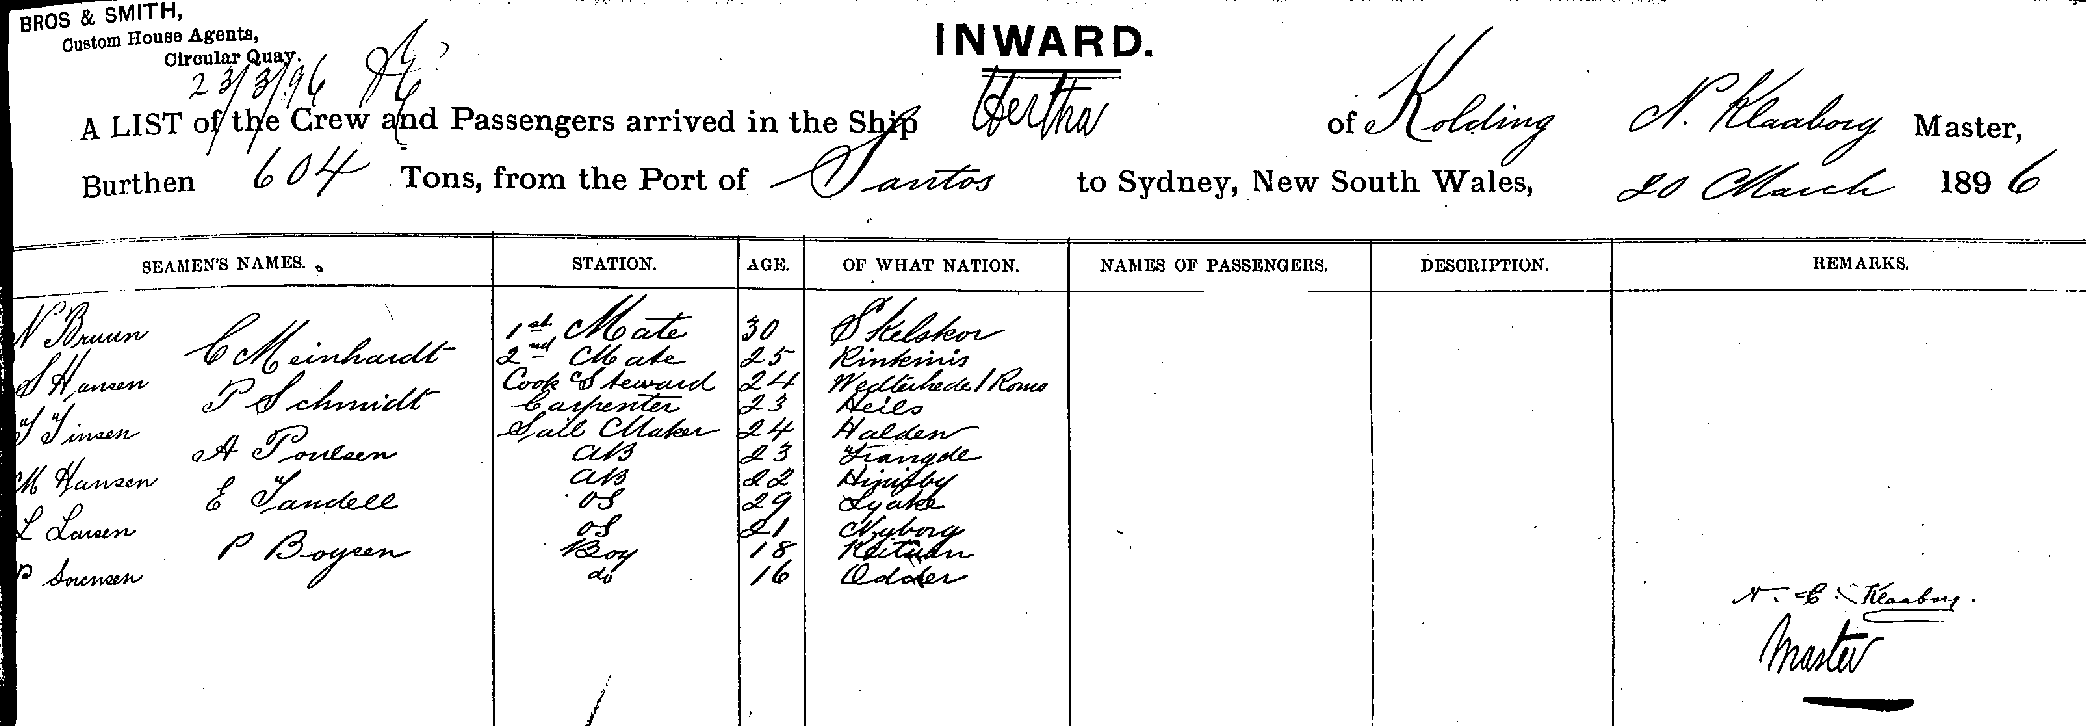 BROS & SMITH,
Custom House Agents,
Circular Quay.
23/3/96
INWARD.
A LIST of the Crew and Passengers arrived in the Ship Hertha of Kolding N. Klaaborg Master,
Burthen 604 Tons, from the Port of Santos to Sydney, New South Wales, 20 March 1896
SEAMEN'S NAMES. STATION. AGE. OF WHAT NATION. NAMES OF PASSENGERS. DESCRIPTION. REMARKS.
N Bruun 1st Mate 30 Skelskor
C Meinhardt 2nd Mate 25
S Hansen Cook & Steward 24
P Schmidt Carpenter 23 Heils
T Tinsen Sail Maker 24 Halden
A Poulsen AB 23
M Hansen AB 22
E Tandell OS 29
L Larsen OS 21 Nyborg
P Boysen Boy 18
P Sorensen do 16 Odder
N. C. Klaaborg.
Master